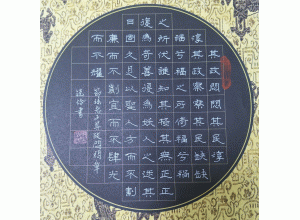 其政悶悶其民淳
淳其政察察其民缺缺
禍兮福之所倚福兮禍
之所伏孰知其極其無正正
復為奇善復為妖人之迷其
日固久是以聖人方而不割
廉而不劌直而不肆光
而不耀